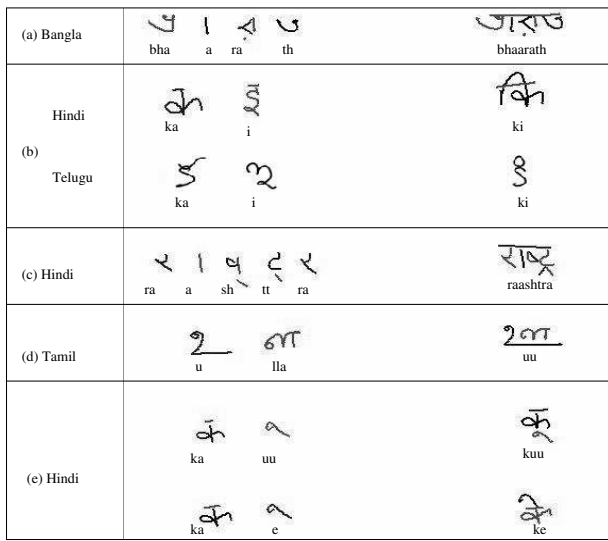 (a) Bangla ভ া র ত ভারত
bha a ra th bhaarath
(b)
Hindi क इ कि
ka i ki
Telugu క ఇ కి
ka i ki
(c) Hindi र ा ष् ट् र राष्ट्र
ra a sh tt ra raashtra
(d) Tamil உ ள ஊ
u lla uu
(e) Hindi
क ू कू
ka uu kuu
क े के
ka e ke